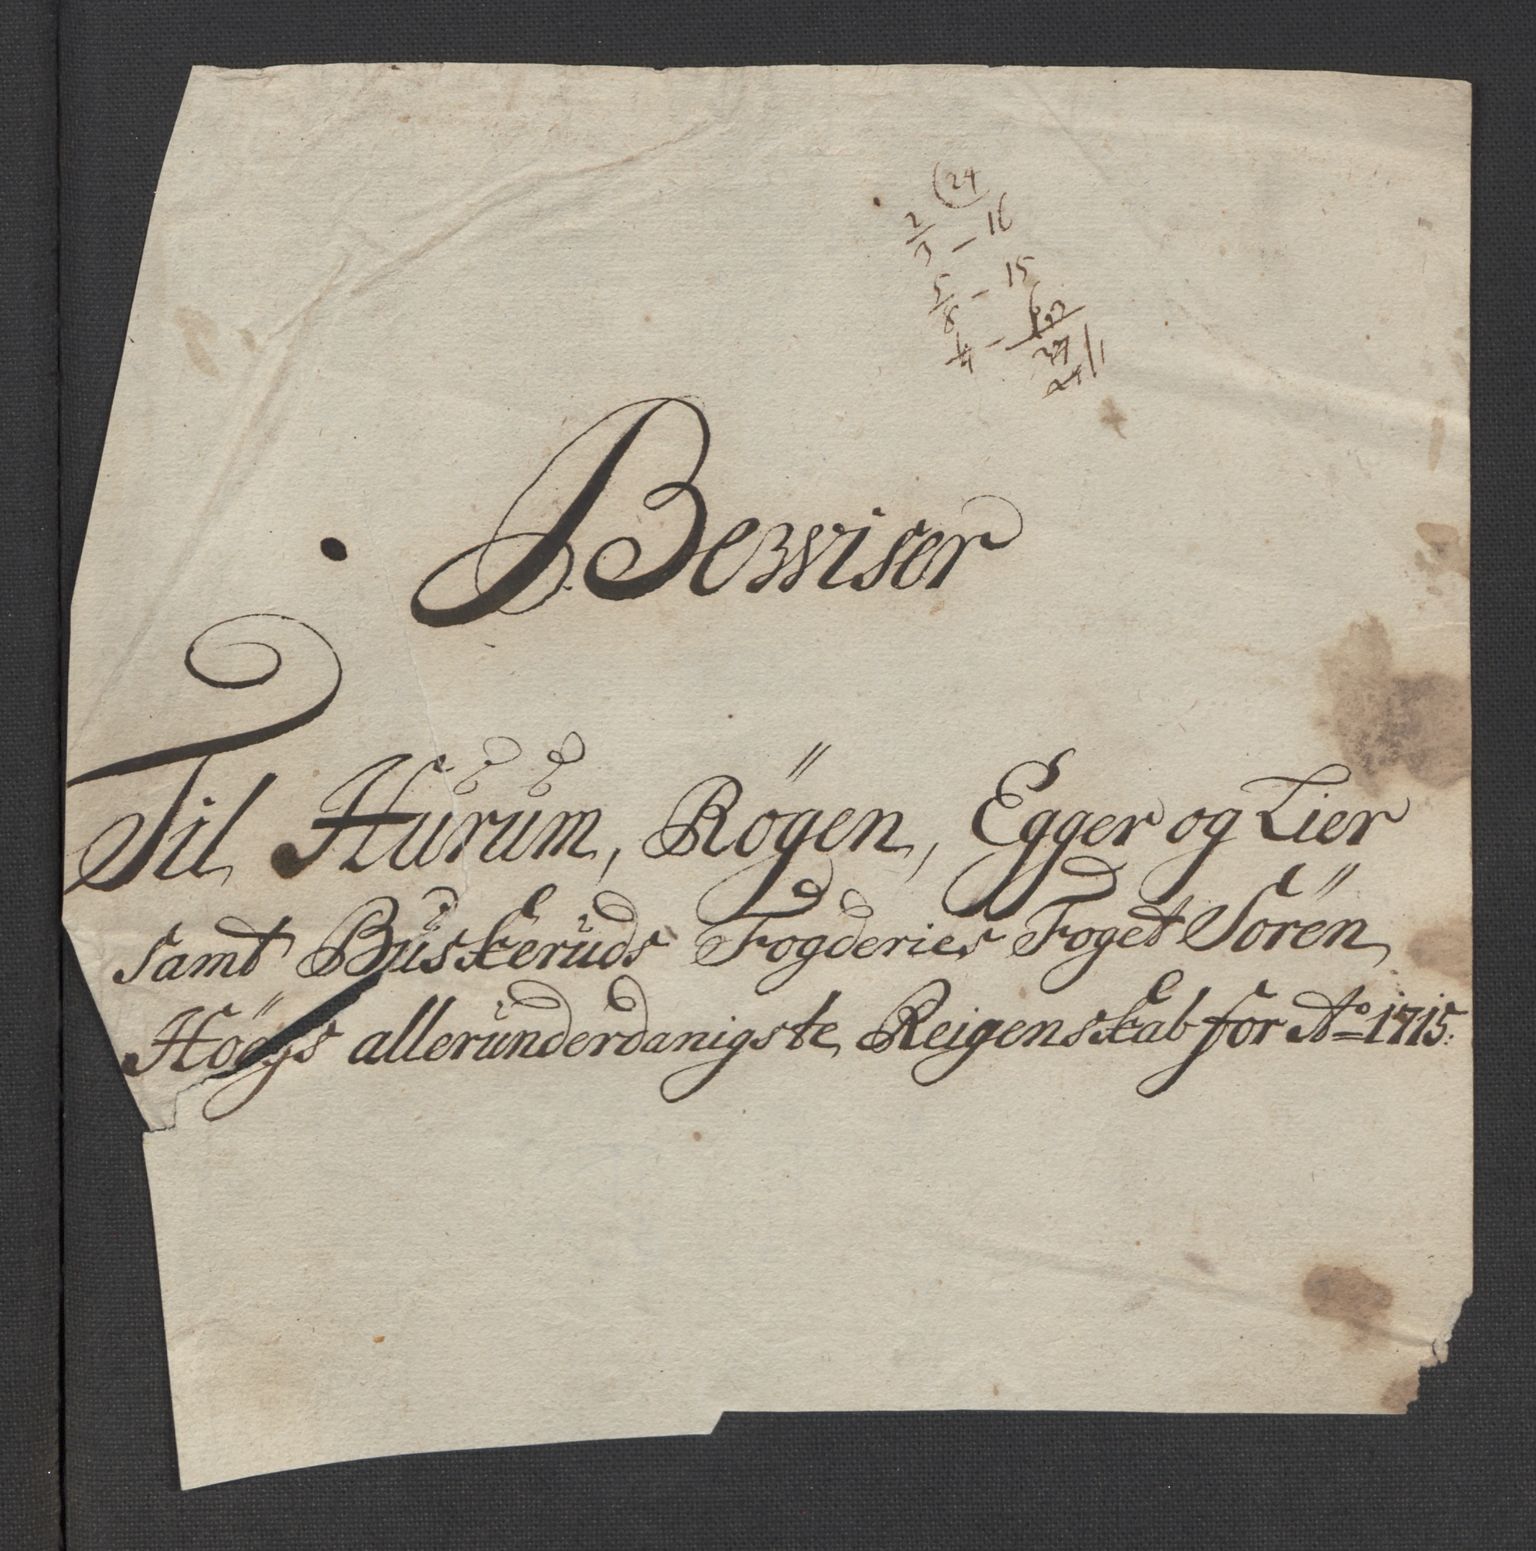 24
2/3 – 16
5/8 – 15
1/4 – 6
Bewiser
Til Hurum, Rögen, Egger og Lier
samt Buskeruds Fogderies Foget Sören
Höegs allerunderdanigste Reigenskab for Ao 1715.